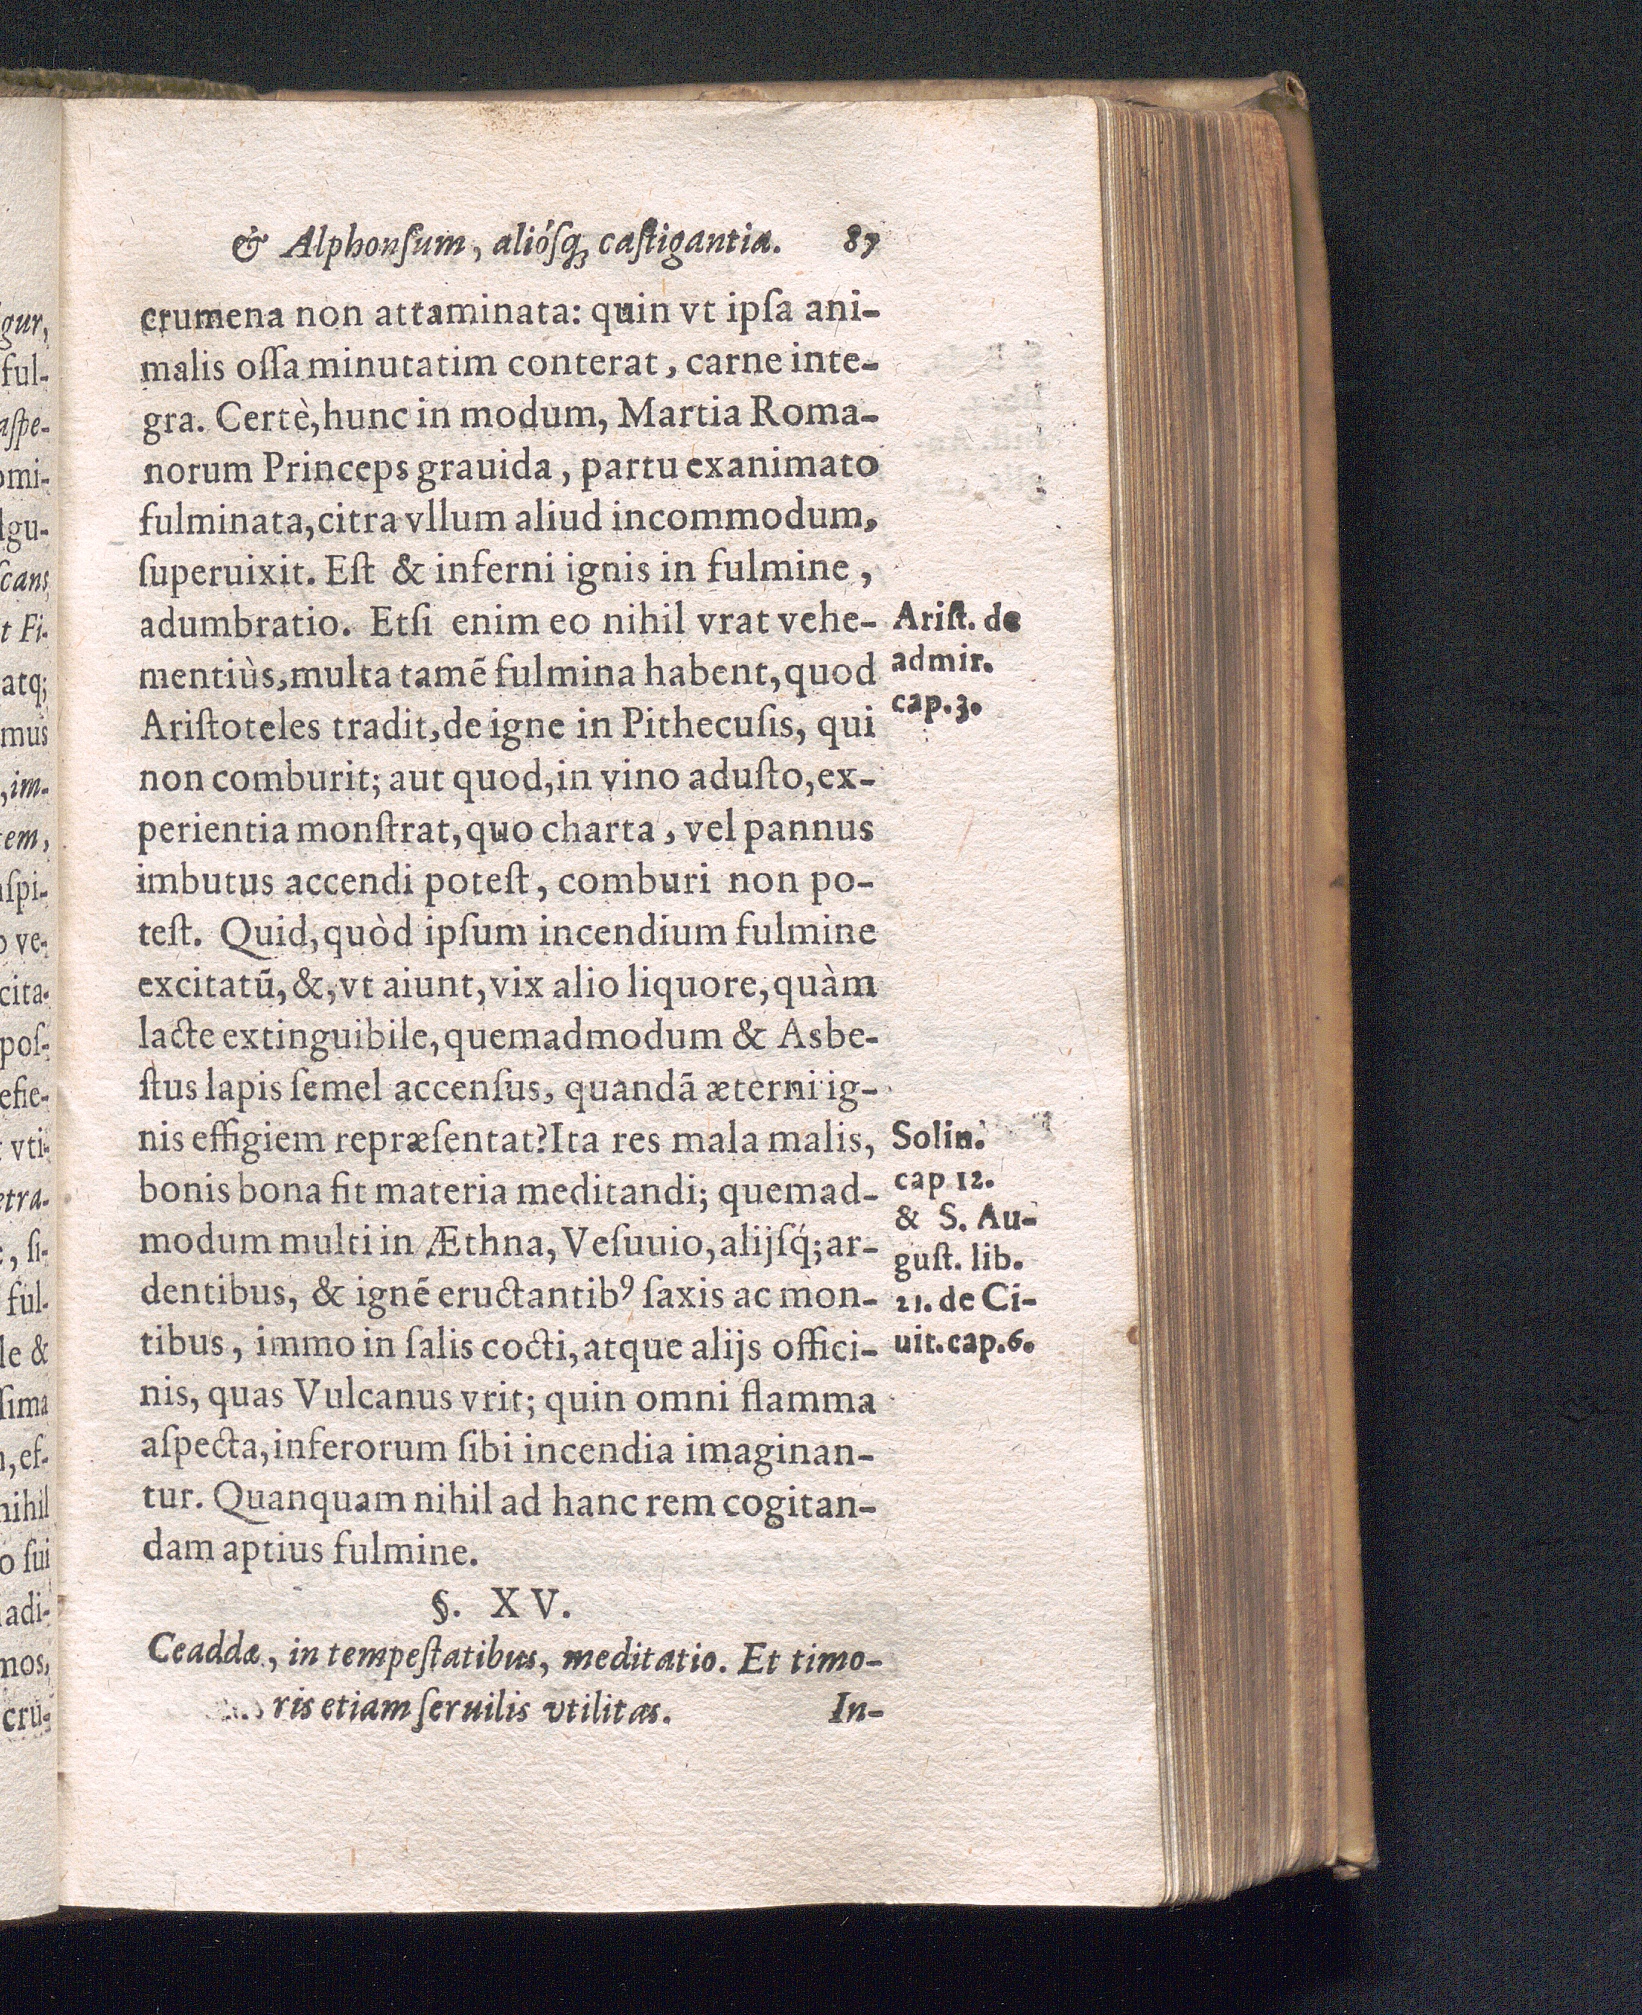 & Alphonſum, alióſq; caſtigantia. 87
crumena non attaminata: quin vt ipſa ani-
malis oſſa minutatim conterat, carne inte-
gra. Certè, hunc in modum, Martia Roma-
norum Princeps grauida, partu exanimato
fulminata, citra vllum aliud incommodum,
ſuperuixit. Eſt & inferni ignis in fulmine,
adumbratio. Etſi enim eo nihil vrat vehe-
mentiùs, multa tamē fulmina habent, quod
Ariſtoteles tradit, de igne in Pithecuſis, qui
non comburit; aut quod, in vino aduſto, ex-
perientia monſtrat, quo charta, vel pannus
imbutus accendi poteſt, comburi non po-
teſt. Quid, quòd ipſum incendium fulmine
excitatū, &, vt aiunt, vix alio liquore, quàm
lacte extinguibile, quemadmodum & Asbe-
ſtus lapis ſemel accenſus, quandā æterni ig-
nis effigiem repræſentat? Ita res mala malis,
bonis bona fit materia meditandi; quemad-
modum multi in Æthna, Veſuuio, alijſq́; ar-
dentibus, & ignē eructantibꝰ ſaxis ac mon-
tibus, immo in ſalis cocti, atque alijs offici-
nis, quas Vulcanus vrit; quin omni flamma
aſpecta, inferorum ſibi incendia imaginan-
tur. Quanquam nihil ad hanc rem cogitan-
dam aptius fulmine.
§. XV.
Ceaddæ, in tempeſtatibus, meditatio. Et timo-
ris etiam ſeruilis vtilitas.
In-
Ariſt. de
admir.
cap. 3.
Solin.
cap 12.
& S. Au-
guſt. lib.
21. de Ci-
uit. cap. 6.
gur,
ful-
aſpe-
omi-
lgu-
ſcans
t Fi-
atq;
mus
, im-
tem,
ſpi-
o ve-
cita-
poſ-
efie-
vti-
etra-
, ſi-
ful-
le &
ſima
, ef-
nihil
o ſui
adi-
mos,
cru-